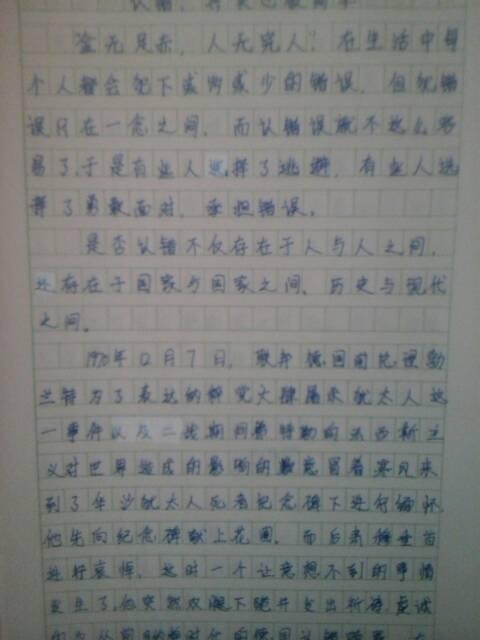 认错，其实也很简单
金无足赤，人无完人！在生活中每
个人都会犯下或多或少的错误，但犯错
误只在一念之间，而认错误就不这么容
易了于是有些人选择了逃避，有些人选
择了勇敢面对，承担错误。
是否认错不仅存在于人与人之间，
还存在于国家与国家之间，历史与现代
之间。
1970年12月7日，联邦德国前总理勃
兰特为了表达纳粹党大肆屠杀犹太人这
一事件以及二战期间希特勒的法西斯主
义对世界造成的影响的歉意冒着寒风来
到了华沙犹太人死者纪念碑下进行缅怀
他先向纪念碑献上花圈，而后肃穆垂首
进行哀悼，这时一个让意想不到的事情
发生了他突然双腿下跪并发出祈祷虔诚